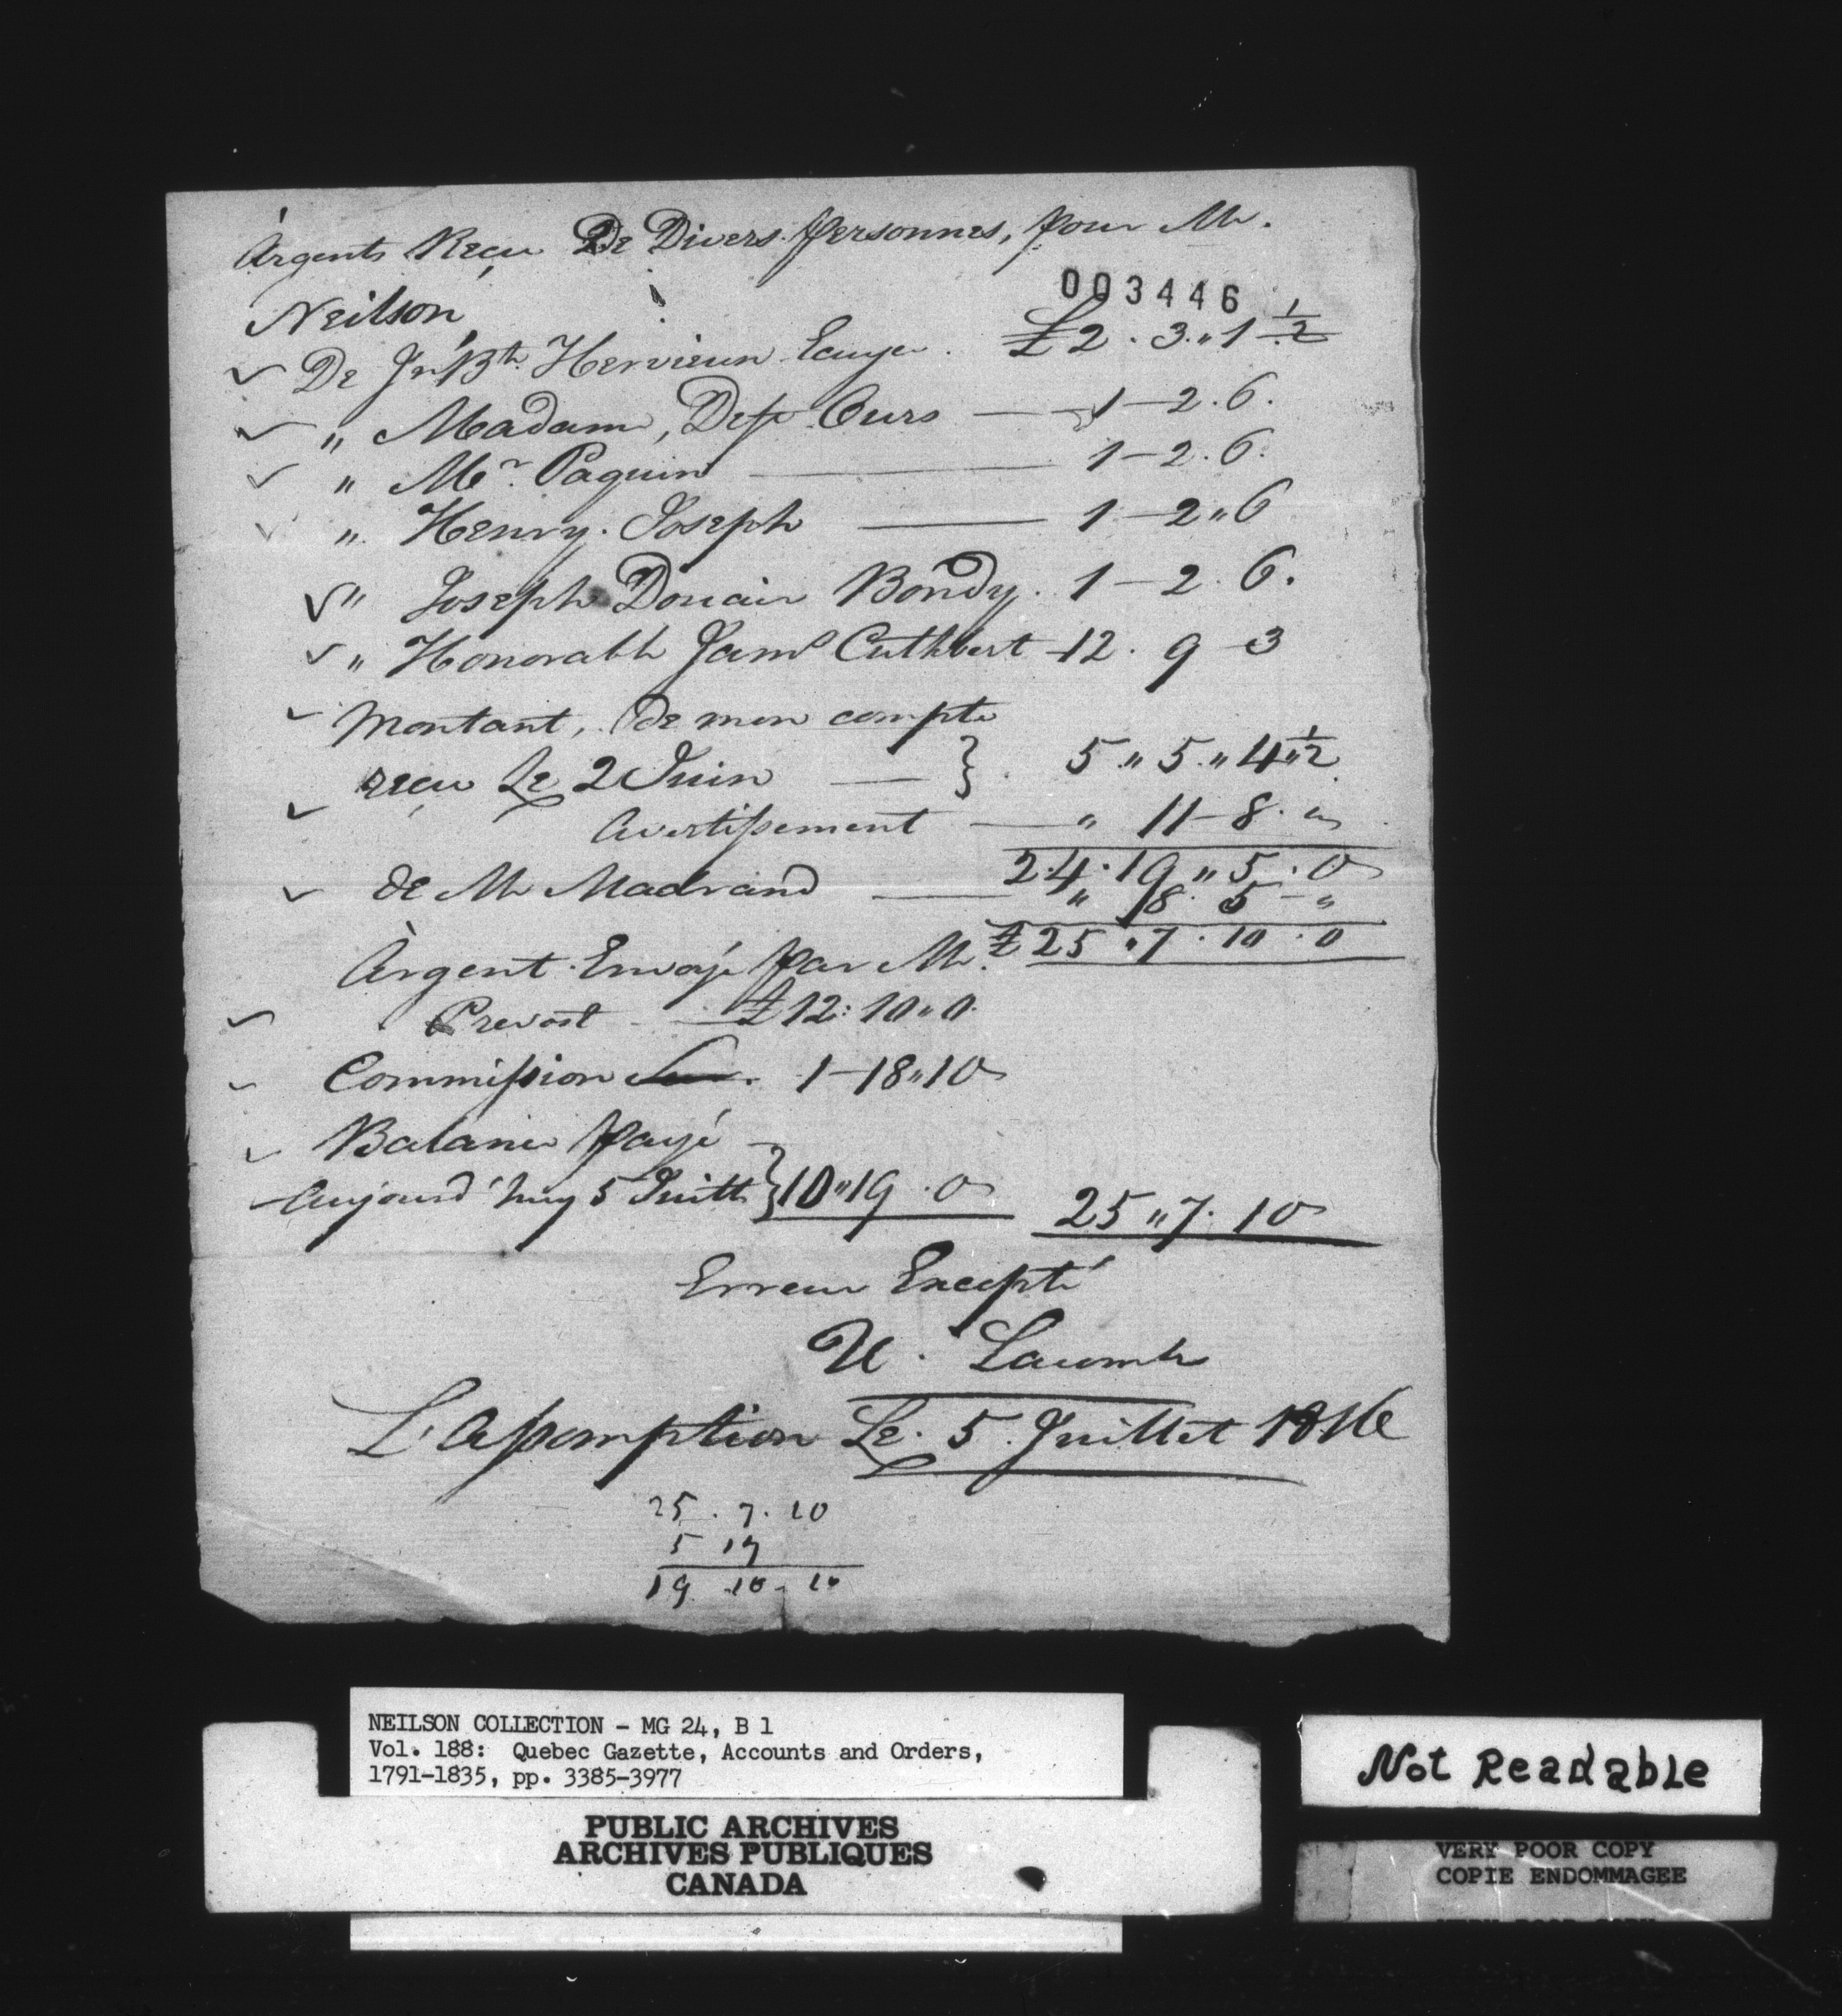 Argents Reçu De Divers personnes, pour Mr.
003446
Neilson
De Jn Bte. Hervieux Ecuyer. £2 . 3 " 1 1/2
" Madame, Desp Ours — 1 - 2 . 6.
" Mr. Paquin — 1 - 2 . 6.
" Henry. Joseph — 1 - 2 " 6
" Joseph Douair Bondy. 1 - 2 . 6.
" Honorable Jams Cuthbert 12 . 9 - 3
Montant, de mon compte
reçu Le 2 Juin — } 5 " 5 " 4 " 1/2
Avertissement — " 11 - 8 . "
24 . 19 " 5 . 0
de Mr — " 8 . 5 - "
£25 " 7 . 10 . 0
Argent Envoyé par Mr.
Prevost — £12 : 10 " 0
Commission 1 - 18 " 10
Balance payé
Aujourd'huy 5 Juillt } 10 " 19 . 0 25 " 7 . 10
Erreur Excepté
U. Lacombe
L'Assomption Le. 5. Juillet 1816
25 . 7 . 10
5 19
19 10 10
NEILSON COLLECTION - MG 24, B 1
Vol. 188: Quebec Gazette, Accounts and Orders,
1791-1835, pp. 3385-3977
PUBLIC ARCHIVES
ARCHIVES PUBLIQUES
CANADA
Not Readable
VERY POOR COPY
COPIE ENDOMMAGEE